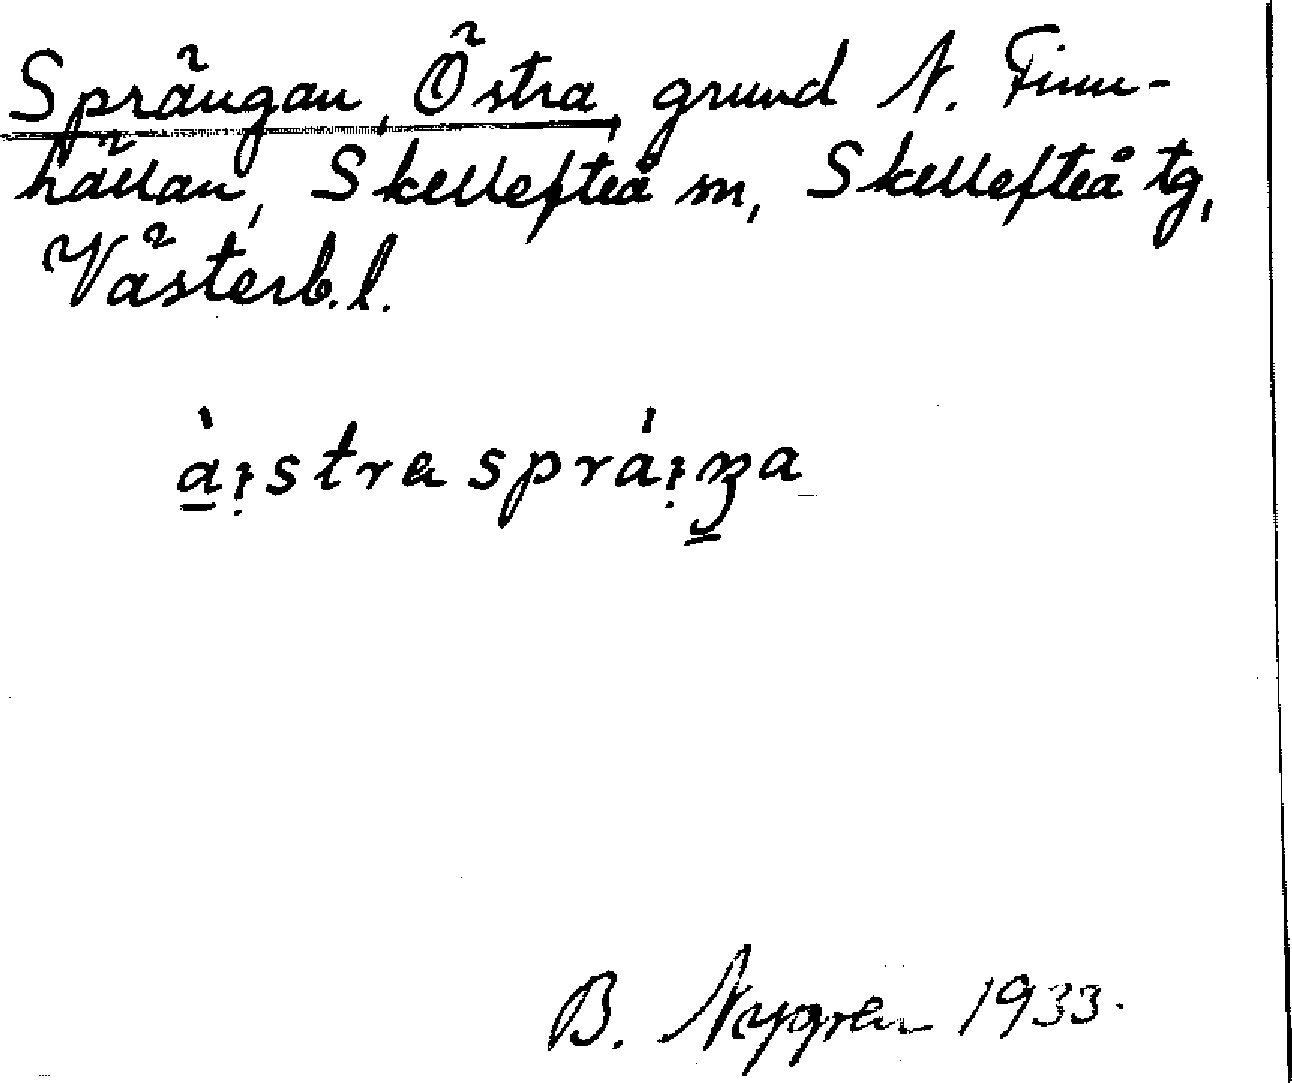 Sprängan, Östra, grund N. Finn-
hällan, Skellefteå sn, Skellefteå tg,
Västerb. l.
à̱ı̣stra sprá̱ı̣ŋa
B. Nygren 1933.